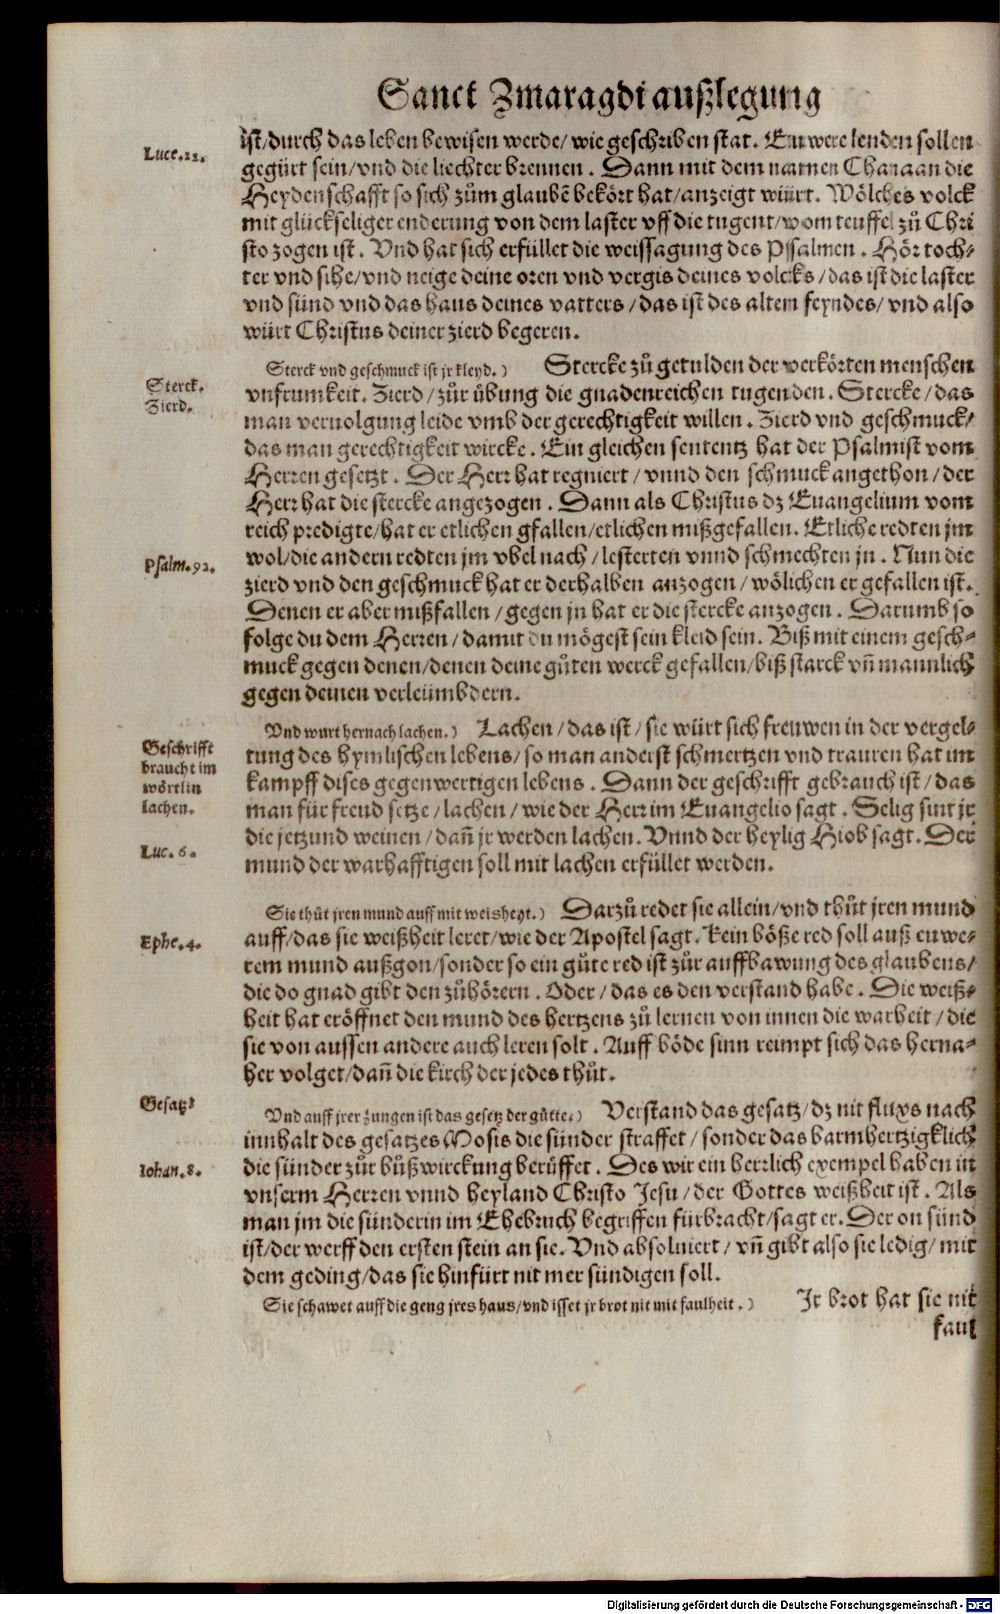 Sanct Zmaragdi außlegung
Luce.12.
ist/durch das leben bewisen werde/ wie geschriben stat. Euwere lenden sollen
gegürt sein/vnd die liechter brennen. Dann mit dem namen Chanaan die
Heydenschafft so sich zům glaubē bekört hat/anzeigt würt. Wölches volck
mit glückseliger enderung von dem laster vff die tugent/vom teuffel zů Chri
sto zogen ist. Vnd hat sich erfüllet die weissagung des Pssalmen. Hör toch-
ter vnd sihe/vnd neige deine oren vnd vergis deines volcks/das ist die laster
vnd sünd vnd das haus deines vatters/das ist des altem feyndes/vnd also
würt Christus deiner zierd begeren.
Sterck vnd geschmuck ist jr kleyd.) Stercke zů getulden der verkörten menschen
Sterck.
Zierd.
vnfrumkeit. Zierd/zůr übung die gnadenreichen tugenden. Stercke/das
man veruolgung leide vmb der gerechtigkeit willen. Zierd vnd geschmuck/
das man gerechtigkeit wircke. Ein gleichen sententz hat der Psalmist vom
Herren gesetzt. Der Herr hat regniert/vnnd den schmuck angethon/der
Herr hat die stercke angezogen. Dann als Christus dz Euangelium vom
reich predigte/hat er etlichen gfallen/etlichen mißgefallen. Etliche redten jm
Psalm.92.
wol/die andern redten jm vbel nach/lesterten vnnd schmechten jn. Nun die
zierd vnd den geschmuck hat er derhalben anzogen/wölichen er gefallen ist.
Denen er aber mißfallen/gegen jn hat er die stercke anzogen. Darumb so
folge du dem Herren/damit du mögest sein kleid sein. Biß mit einem gesch-
muck gegen denen/denen deine gůten werck gefallen/biß starck vñ mannlich
gegen deinen verleümbdern.
Vnd wurt hernach lachen.) Lachen/das ist/sie würt sich freuwen in der vergel-
Geschrifft
braucht im
wörtlin
lachen.
tung des hymlischen lebens/so man anderst schmertzen vnd trauren hat im
kampff dises gegenwertigen lebens. Dann der geschrifft gebrauch ist/das
man für freud setze/lachen/wie der Herr im Euangelio sagt. Selig sint jr
Luc.6.
die jetzund weinen/dañ jr werden lachen. Vnnd der heylig Hiob sagt. Der
mund der warhafftigen soll mit lachen erfüllet werden.
Sie thůt jren mund auff mit weisheyt.) Darzů redet sie allein/vnd thůt jren mund
Ephe.4.
auff/das sie weißheit leret/wie der Apostel sagt. Kein böße red soll auß euwe-
rem mund außgon/sonder so ein gůte red ist zůr auffbawung des glaubens/
die do gnad gibt den zůhörern. Oder/das es den verstand habe. Die weiß-
heit hat eröffnet den mund des hertzens zů lernen von innen die warheit/die
sie von aussen andere auch leren solt. Auff böde sinn reimpt sich das herna-
her volget/dañ die kirch der jedes thůt.
Gesatz
Vnd auff jrer zungen ist das gesetz der gütte.) Verstand das gesatz/dz nit fluxs nach
innhalt des gesatzes Mosis die sünder straffet/sonder das barmhertzigklich
Iohan.8.
die sünder zůr bůßwirckung berůffet. Des wir ein herrlich exempel haben in
vnserm Herren vnnd heyland Christo Jesu/der Gottes weißheit ist. Als
man jm die sünderin im Ehebruch begriffen fürbracht/sagt er. Der on sünd
ist/der werff den ersten stein an sie. Vnd absoluiert/vñ gibt also sie ledig/mit
dem geding/das sie hinfürt nit mer sündigen soll.
Sie schawet auff die geng jres haus/vnd isset jr brot nit mit faulheit.) Jr brot hat sie nit
faul
Digitalisierung gefördert durch die Deutsche Forschungsgemeinschaft - DFG